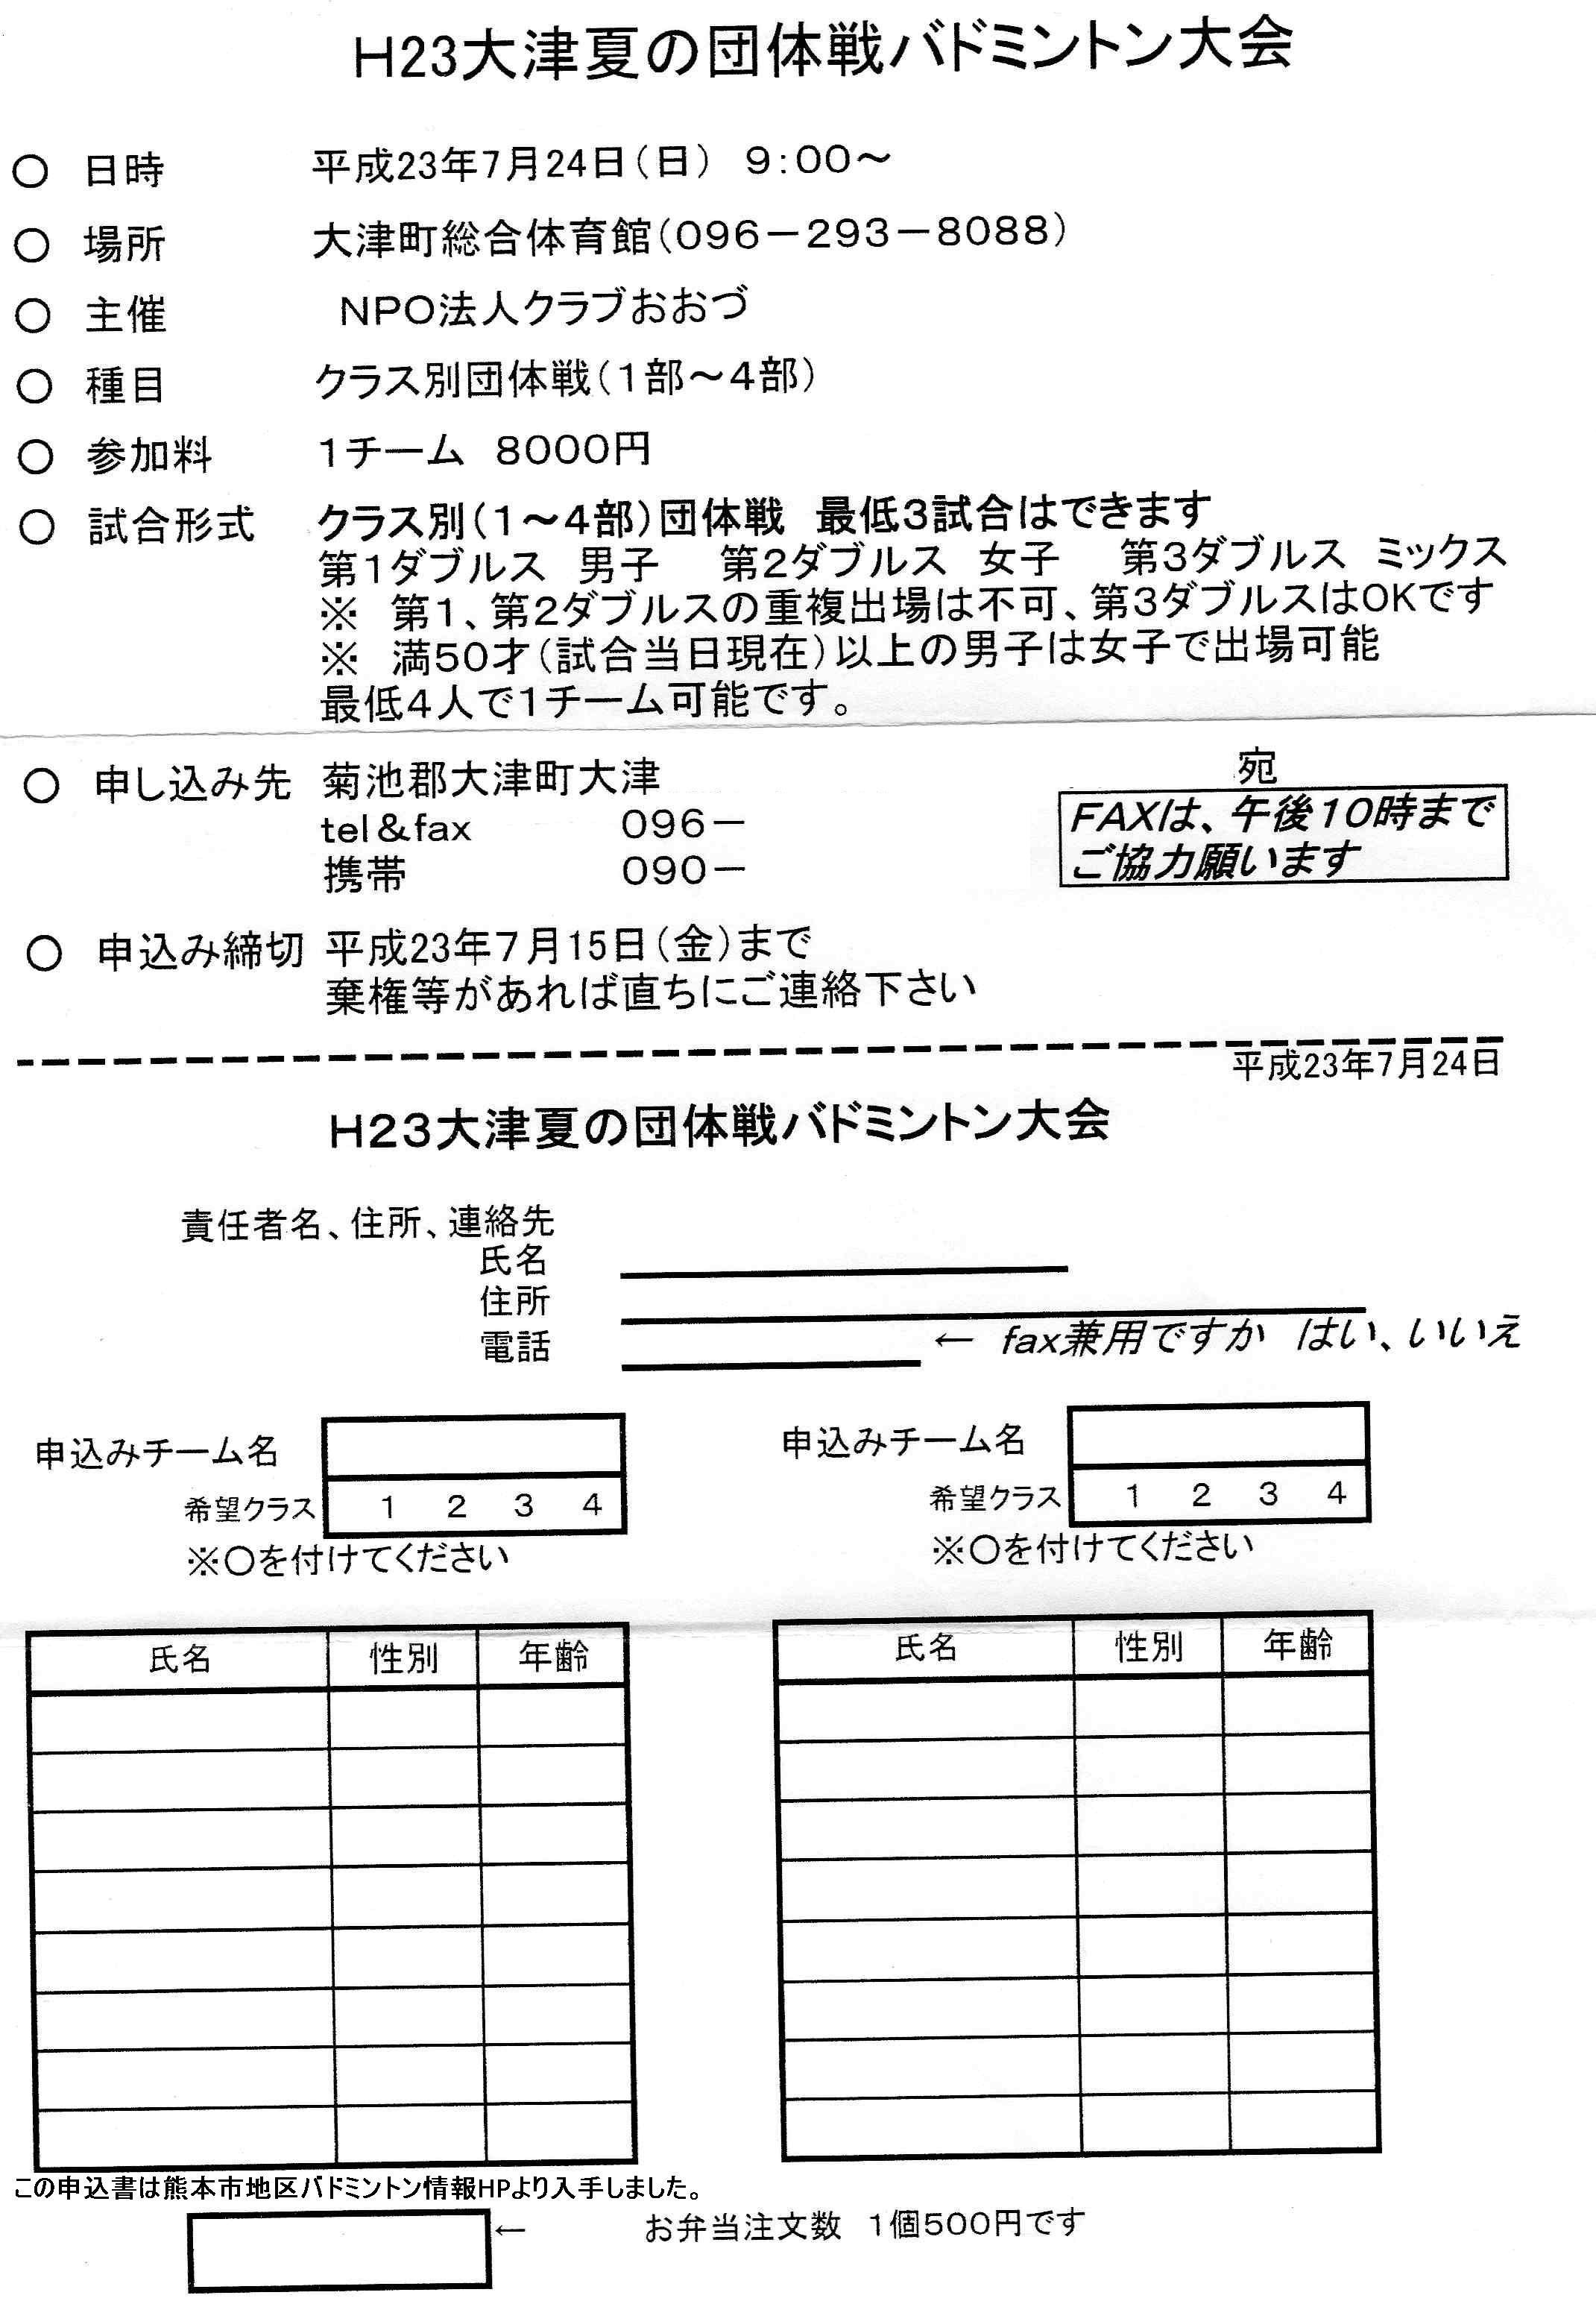 H23大津夏の団体戦バドミントン大会
○ 日時 平成23年7月24日(日) 9:00～
○ 場所 大津町総合体育館(096－293－8088)
○ 主催 NPO法人クラブおおづ
○ 種目 クラス別団体戦(1部～4部)
○ 参加料 1チーム 8000円
○ 試合形式 クラス別(1～4部)団体戦 最低3試合はできます
第1ダブルス 男子 第2ダブルス 女子 第3ダブルス ミックス
※ 第1、第2ダブルスの重複出場は不可、第3ダブルスはOKです
※ 満50才(試合当日現在)以上の男子は女子で出場可能
最低4人で1チーム可能です。
○ 申し込み先 菊池郡大津町大津 宛
tel&fax 096－
携帯 090－
FAXは、午後10時まで
ご協力願います
○ 申込み締切 平成23年7月15日(金)まで
棄権等があれば直ちにご連絡下さい
平成23年7月24日
H23大津夏の団体戦バドミントン大会
責任者名、住所、連絡先
氏名
住所
電話 ← fax兼用ですか はい、いいえ
申込みチーム名 申込みチーム名
希望クラス 1 2 3 4 希望クラス 1 2 3 4
※○を付けてください ※○を付けてください
氏名 性別 年齢 氏名 性別 年齢
この申込書は熊本市地区バドミントン情報HPより入手しました。
← お弁当注文数 1個500円です